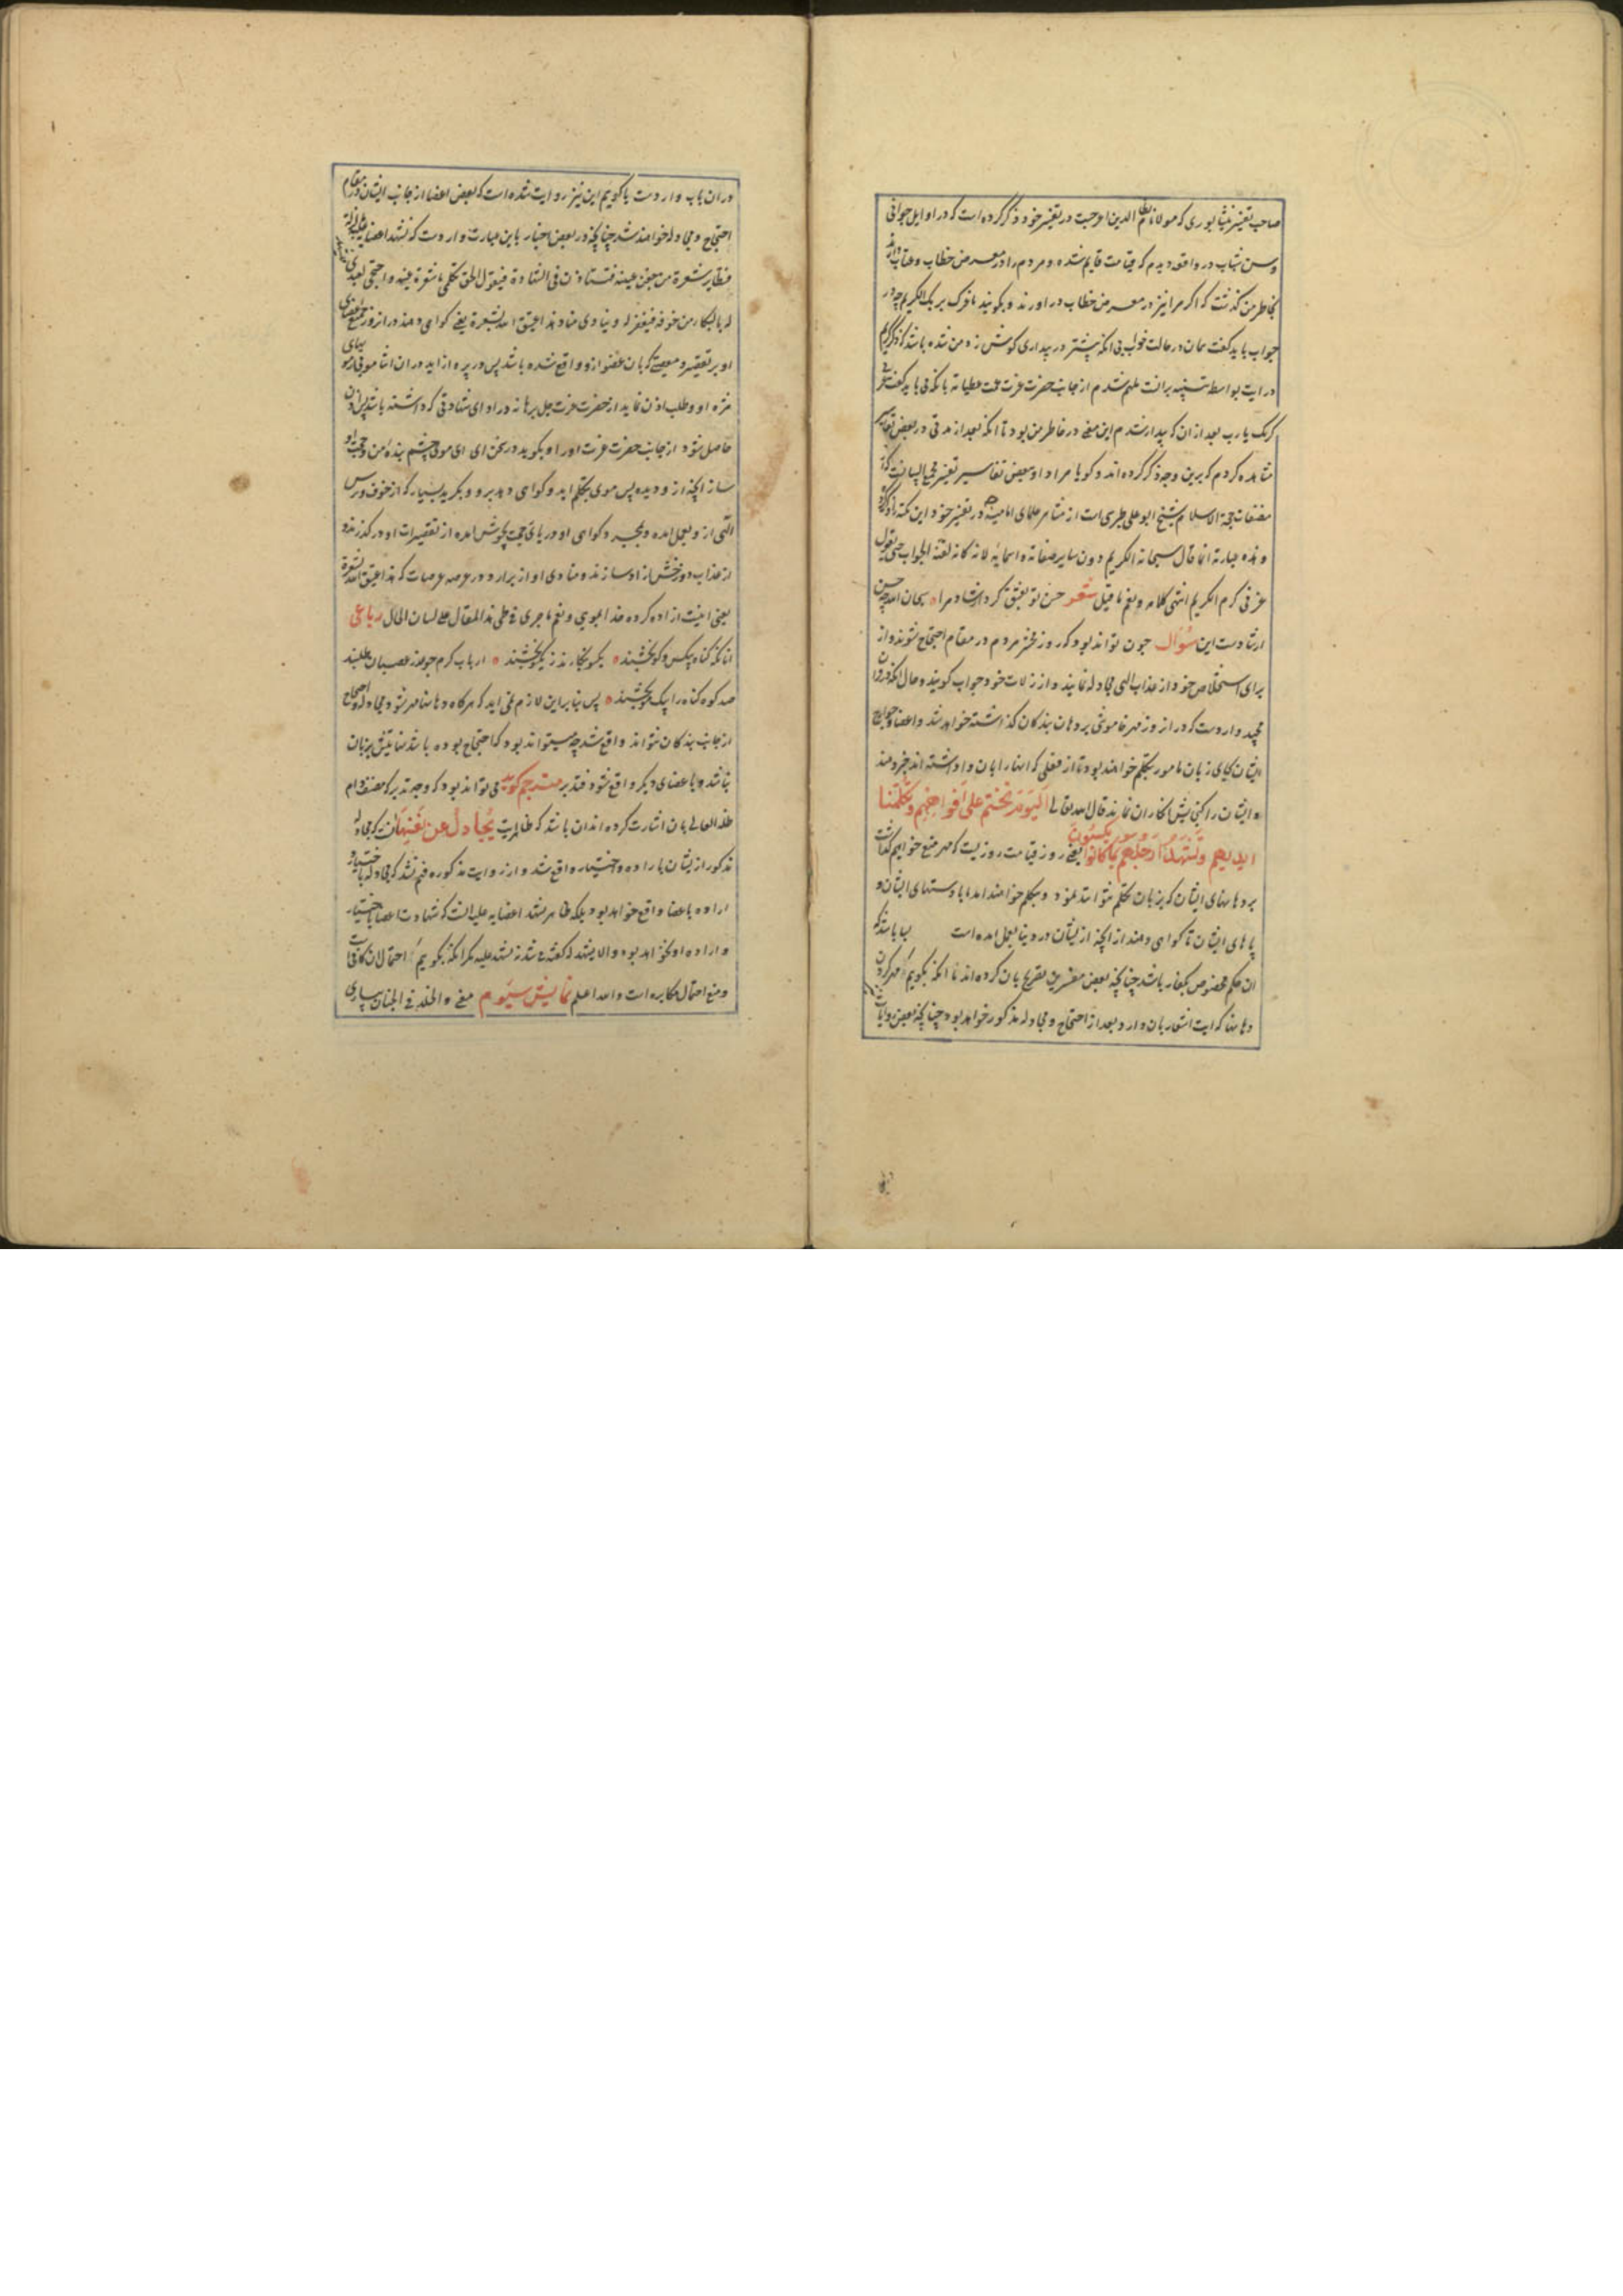 صاحب تفسیر نیشابوری که مولانا نظام الدین اعرجیت در تفسیر خود ذکر کرده است که در اوایل جوانی
وسن شباب در واقعه دیدم که قیامت قایم شده و مردم را در معرض خطاب و عتاب
بخاطر من گذشت که اگر مرا نیز در معرض خطاب در اورند و بگویند ما غرک بربک الکریم چه در
جواب باید گفت همان در حالت خواب بی انکه پیشتر در بیداری گوش زد من شده باشد که ذکر کریم
در ایت بواسطه تنبیه برانست ملهم شدم از جانب حضرت عزت عمت عطیاته بانکه می باید گفت غرنی
کرمک یا رب بعد از ان که بیدار شدم این معنی در خاطر من بود تا انکه بعد از مدتی در بعض تفاسیر
مشاهده کردم که برین وجه ذکر کرده اند و گویا مراد او ببعض تفاسیر تفسیر مجمع البیانست که از
مصنفات حجة الاسلام شیخ ابو علی طبری است از مشاهر علمای امامیه در تفسیر خود این نکته را ذکر کرده
و هذه عبارته انما قال سبحانه الکریم دون سایر صفاته و اسمائه لانه کانه لقنه الجواب حتی یقول
غرنی کرم الکریم انتهی کلامه و نعم ما قیل شعر حسن تو بعشق کرد ارشاد مرا سبحان الله چه حسن
ارشادست این سؤال چون تواند بود که روز محشر مردم در مقام احتجاج شوند و از
برای استخلاص خود از عذاب الهی مجادله نمایند و از زلات خود جواب گویند و حال انکه در قران
مجید واردست که در از روز مهر خاموشی بر دهان بندکان گذاشته خواهد شد و اعضا و جوارح
ایشان بجای زبان مامور بتکلم خواهند بود تا از فعلی که انها را بان واداشته اند خبر دهند
و ایشان را کنجایش انکار ان نماند قال الله تعالی الیوم نختم علی افواههم وتکلمنا
ایدیهم وتشهد ارجلهم بما کانوا یکسبون یعنی روز قیامت روزیست که مهر منع خواهیم گذاشت
بر دهانهای ایشان که بزبان تکلم نتوانند نمود و بتکلم خواهند امد با ما دستهای ایشان و
پاهای ایشان تا گواهی دهند از انچه از ایشان در دنیا بعمل امده است
ان حکم مخصوص بکفار باشد چنانچه بعض مفسرین تصریح بان کرده اند تا انکه بگویم مهر کردن
دهانها که ایت اشعار بان دارد بعد از احتجاج و مجادله مذکور خواهد بود چنانچه بعض روایات
در ان باب واردست یا گویم این نیز روایت شده است که بعض اعضا از جانب ایشان در مقام
احتجاج و مجادله خواهند شد چنانچه در بعض اخبار باین عبارت واردست که تشهد اعضایه علیه بالزلة
فتطایر شعرة من جفن عینه فتستاذن فی الشهادة فیقول الحق تکلمی یا شعرة عینه و احتجی لعبدی
له بالبکاء من خوفه فیغفر له وینادی مناد هذا عتیق الله بشعرة یعنی گواهی دهند در از روز جمیع اعضای
او بر تقصیر و معصیتی که بان عضو ازو واقع شده باشد پس در پرواز اید در ان اثنا مویی از مویهای
مژه او و طلب اذن نماید از حضرت عزت جل برهانه در ادای شهادتی که داشته باشد پس اذن
حاصل شود از جانب حضرت عزت اورا و بگوید در سخن ای ای موی چشم بنده من و حجت او
ساز انچه ازو دیده پس موی بتکلم اید و گواهی دهد برو و بگریه بسیار که از خوف و ترس
الهی ازو بعمل امده و بمجرد گواهی او دریای رحمت بجوش امده از تقصیرات او در گذرند و
از عذاب دوزخش ازاد سازند و منادی اواز برارد در عرصه عرصات که هذا عتیق الله بشعرة
یعنی اینست ازاد کرده خدا بمویی و نعم ما جری فی طی هذا المقال علی لسان الحال رباعی
انانکه گناه بیکس و کو بخشند یکمو نگذارند ز یکمو بخشند ارباب کرم جو عذر عصیان طلبند
صد کوه گناه را بیک مو بخشند پس بنا براین لازم نمی اید که هرگاه دهانها مهر شود مجادله و احتجاج
از جانب بندکان نتواند واقع شد چه میتواند بود که احتجاج بوده باشد نهایتش بزبان
نباشد و با عضای دیگر واقع شود فتدبر مترجم گوید می تواند بود که وجه تدبر که مصنف دام
ظله العالی بان اشارت کرده اند ان باشد که ظاهر ایت یجادل عن نفسها انست که مجادله
مذکور از ایشان باراده و اختیار واقع شد و از روایت مذکوره فهم نشد که مجادله باختیار و
اراده با عضا واقع خواهد بود بلکه ظاهر تشهد اعضایه علیه انست که شهادت اعضا باختیار
و اراده او نخواهد بود و الا یشهد له گفته می شد نه تشهد علیه مگر انکه بگویم احتمال ان کافیست
و منع احتمال مکابره است والله اعلم نمایش سیوم معنی والخلد فی الجنان بیساری